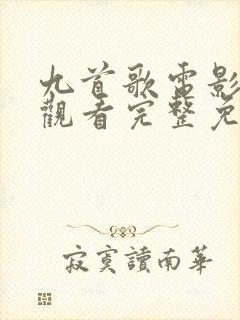 九首歌電影
觀看完整免
寂寞讀南華